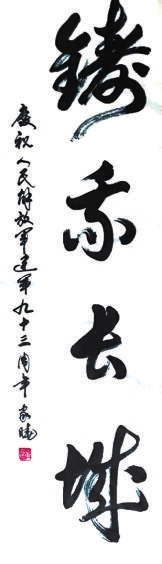 铸我长城
庆祝人民解放军建军九十三周年